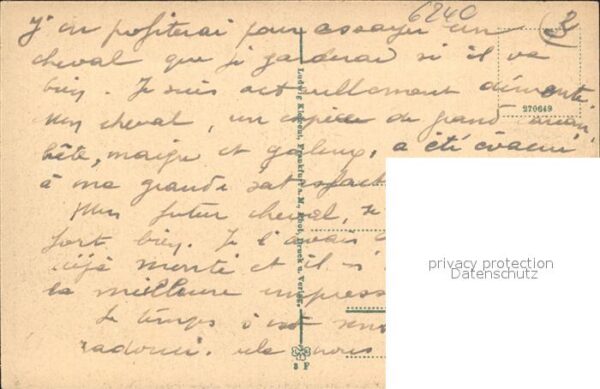 6240
2
J'en profiterai pour essayer un
cheval que je garderai si il va
bien. Je suis actuellement démonté.
270649
Mon cheval, un espèce de grand
bête, maigre et galeux, a été évacué
à ma grande satisfact
Mon futur cheval, je
fort bien. Je l'avais
déjà monté et il
la meilleure impress
Le temps s'est
radouci. nous
Ludwig Klement, Frankfurt a. M., Phot. Druck u. Verlag.
8 F
privacy protection
Datenschutz